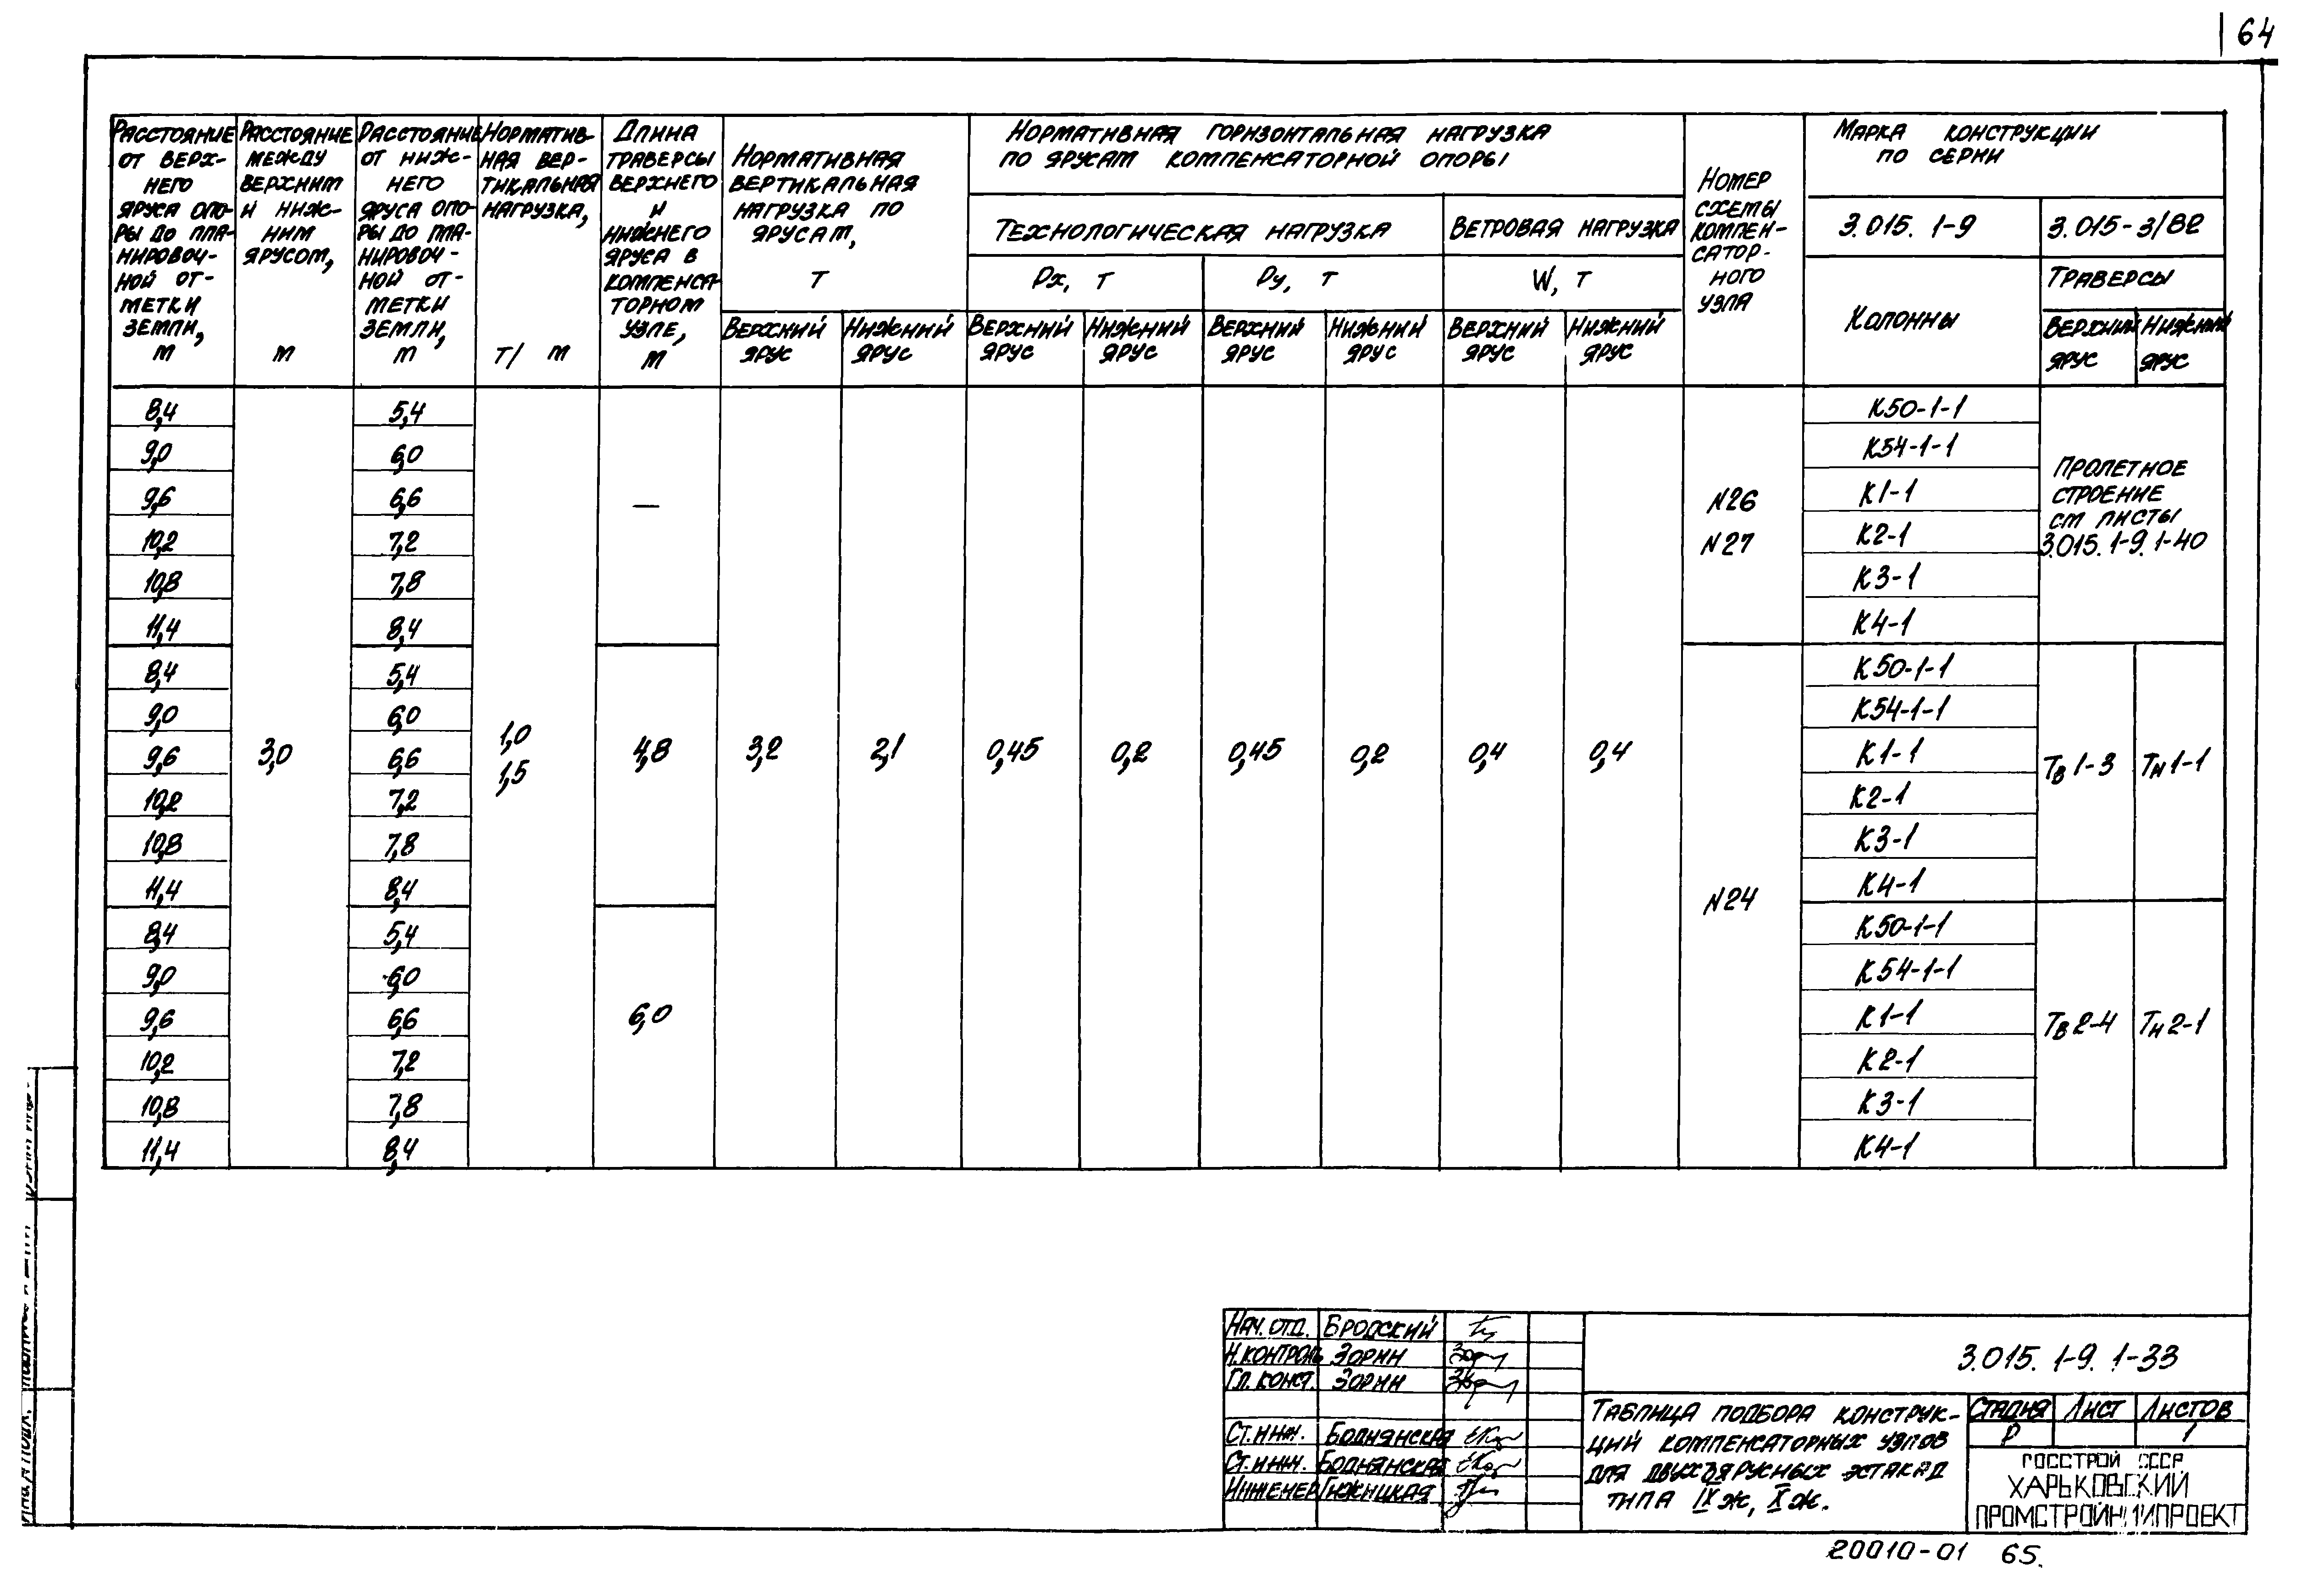 64
Расстояние от верхнего яруса опоры до планировочной отметки земли, м
Расстояние между верхним и нижним ярусом, м
Расстояние от нижнего яруса опоры до планировочной отметки земли, м
Нормативная вертикальная нагрузка, т/м
Длина траверсы верхнего и нижнего яруса в компенсаторном узле, м
Нормативная вертикальная нагрузка по ярусам, т
Нормативная горизонтальная нагрузка
по ярусам компенсаторной опоры
Технологическая нагрузка
Ветровая нагрузка
Рх, т
Ру, т
W, т
Верхний ярус
Нижний ярус
Верхний ярус
Нижний ярус
Верхний ярус
Нижний ярус
Верхний ярус
Нижний ярус
Номер схемы компенсаторного узла
Марка конструкции
по серии
3.015.1-9
3.015-3/82
Колонны
Траверсы
Верхний ярус
Нижний ярус
8,4 5,4 К50-1-1
9,0 6,0 К54-1-1
9,6 6,6 К1-1
10,2 7,2 К2-1
10,8 7,8 К3-1
11,4 8,4 К4-1
—
N26
N27
Пролетное
строение
см листы
3.015.1-9.1-40
8,4 5,4 К50-1-1
9,0 6,0 К54-1-1
9,6 6,6 К1-1
10,2 7,2 К2-1
10,8 7,8 К3-1
11,4 8,4 К4-1
3,0
1,0
1,5
4,8 3,2 2,1 0,45 0,2 0,45 0,2 0,4 0,4
Тв1-3 Тн1-1
N24
8,4 5,4 К50-1-1
9,0 6,0 К54-1-1
9,6 6,6 К1-1
10,2 7,2 К2-1
10,8 7,8 К3-1
11,4 8,4 К4-1
6,0
Тв2-4 Тн2-1
Нач. отд. Бродский
Н. контроль Зорин
Гл. конст. Зорин
Ст. инж. Боднянская
Ст. инж. Боднянская
Инженер Гнжицкая
3.015.1-9.1-33
Таблица подбора конструк-
ций компенсаторных узлов
для двухъярусных эстакад
типа IXж, Xж.
Стадия Лист Листов
Р 1
ГОССТРОЙ СССР
ХАРЬКОВСКИЙ
ПРОМСТРОЙНИИПРОЕКТ
20010-01 65.